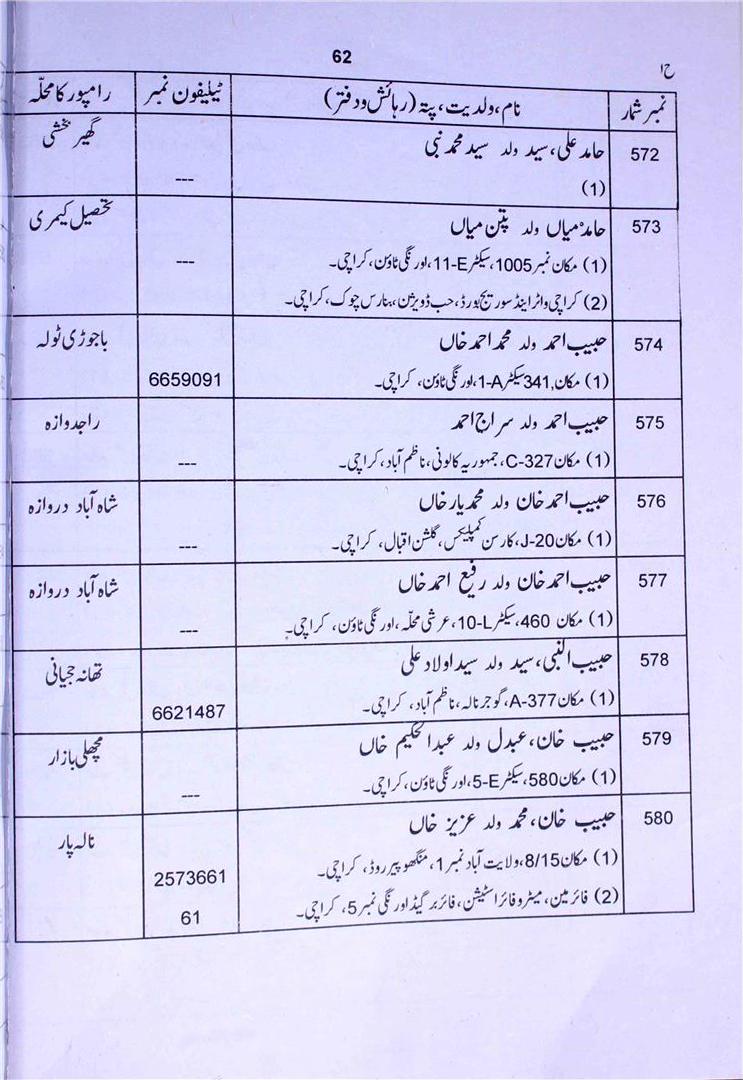 62
ح ا
نمبر شمار	نام، ولدیت، پتہ (رہائش و دفتر)	ٹیلیفون نمبر	رامپور کا محلّہ
572	حامد علی، سید ولد سید محمد نبی	گھیر بخشی
(1)	---
573	حامد میاں ولد پتن میاں	تحصیل کیمری
(1) مکان نمبر 1005، سیکٹر 11-E، اورنگی ٹاؤن، کراچی۔	---
(2) کراچی واٹر اینڈ سوریج بورڈ، حب ڈویژن، بنارس چوک، کراچی۔
574	حبیب احمد ولد محمد احمد خاں	باجوڑی ٹولہ
(1) مکان 341, سیکٹر 1-A، اورنگی ٹاؤن، کراچی۔	6659091
575	حبیب احمد ولد سراج احمد	راجدوازہ
(1) مکان C-327، جمہوریہ کالونی، ناظم آباد، کراچی۔	---
576	حبیب احمد خان ولد محمد یار خاں	شاہ آباد دروازہ
(1) مکان J-20، کارسن کمپلیکس، گلشن اقبال، کراچی۔	---
577	حبیب احمد خان ولد رفیع احمد خاں	شاہ آباد دروازہ
(1) مکان 460، سیکٹر 10-L، عرشی محلّہ، اورنگی ٹاؤن، کراچی۔	---
578	حبیب النبی، سید ولد سید اولاد علی	تھانہ جیانی
(1) مکان A-377، گوجر نالہ، ناظم آباد، کراچی۔	6621487
579	حبیب خان، عبدل ولد عبدالحکیم خاں	مچھلی بازار
(1) مکان 580، سیکٹر 5-E، اورنگی ٹاؤن، کراچی۔	---
580	حبیب خان، محمد ولد عزیز خاں	نالہ پار
(1) مکان 8/15، ولایت آباد نمبر 1، منگھو پیر روڈ، کراچی۔	2573661
(2) فائرمین، میٹرو فائر اسٹیشن، فائر بر گیڈ اورنگی نمبر 5، کراچی۔	61